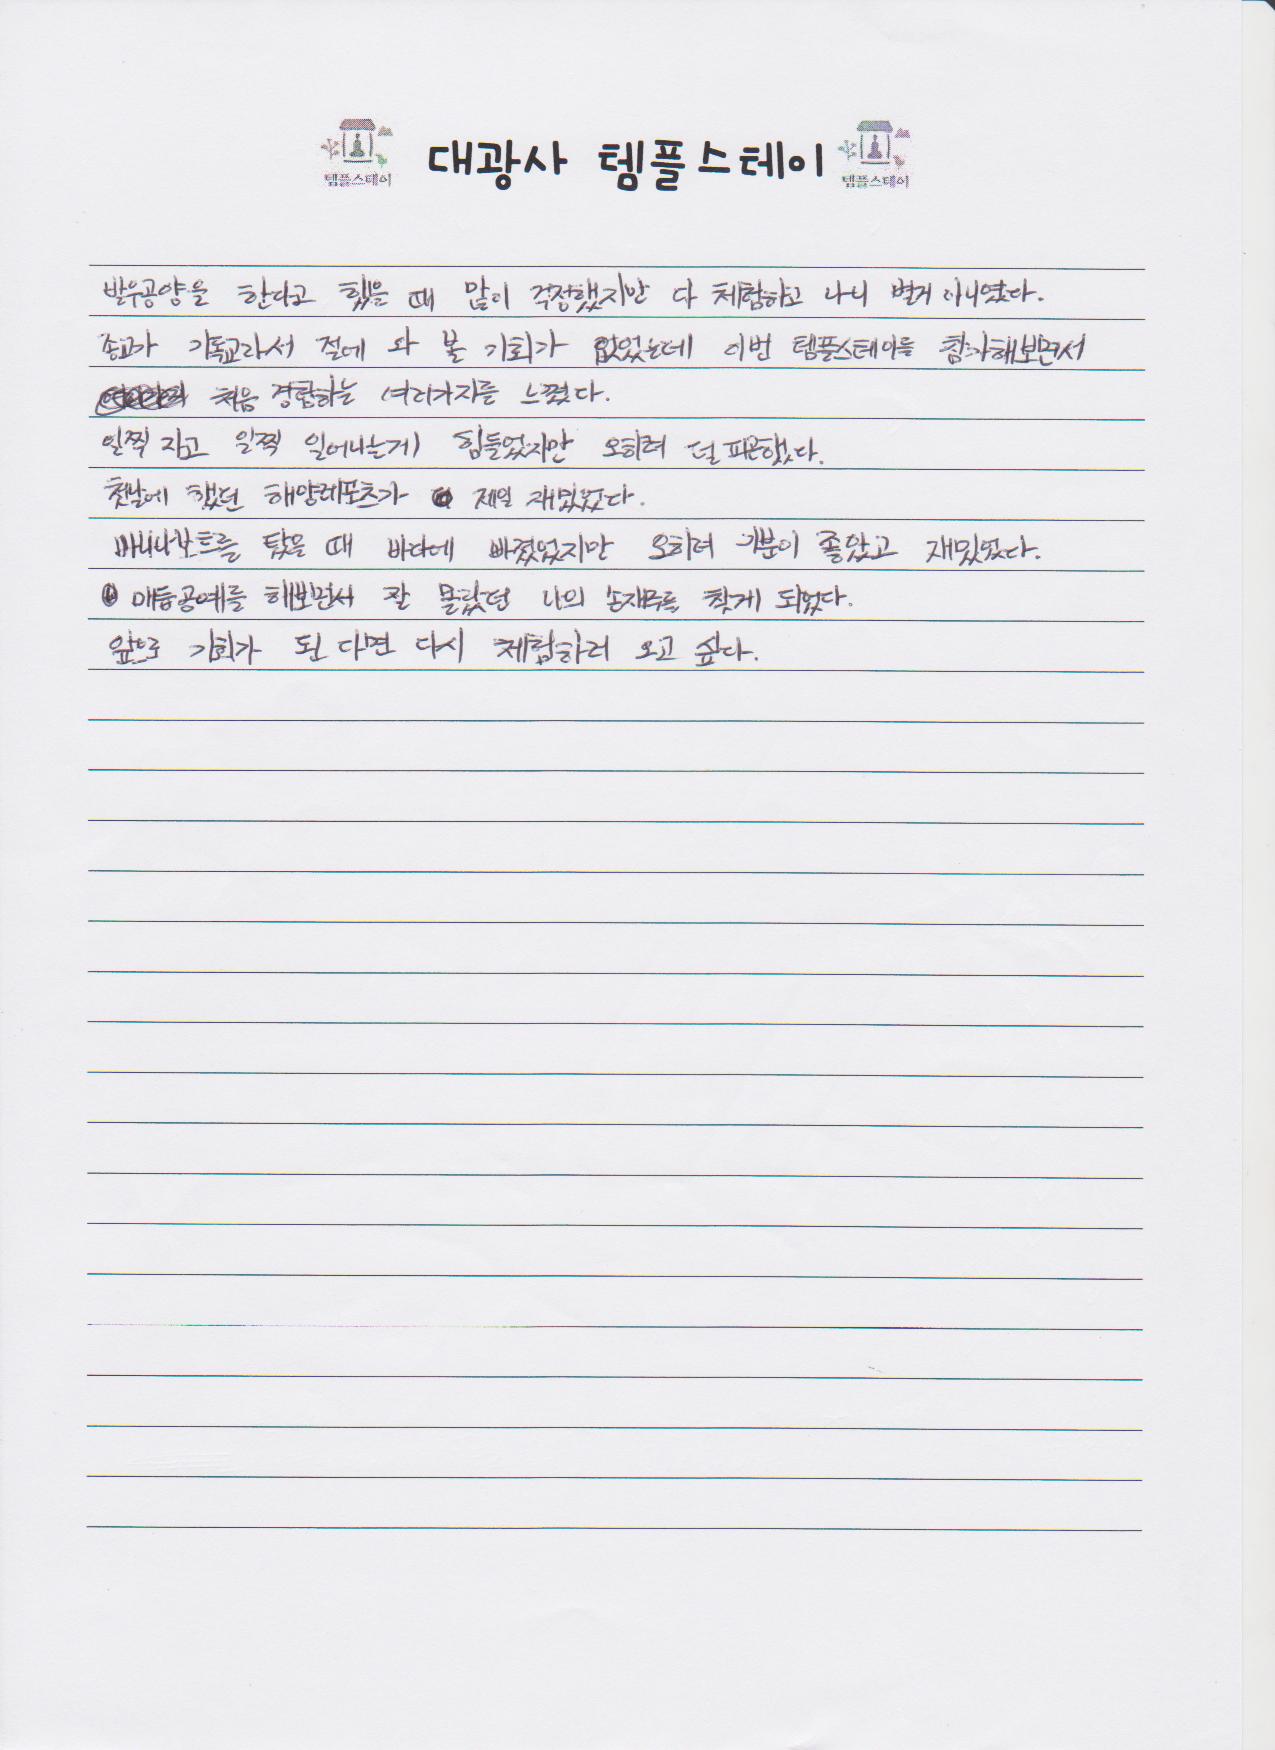 템플스테이 대광사 템플스테이 템플스테이
발우공양을 한다고 했을 때 많이 걱정했지만 다 체험하고 나니 별거 아니였다.
종교가 기독교라서 절에 와 볼 기회가 없었는데 이번 템플스테이를 참가해보면서
처음 경험하는 여러가지를 느꼈다.
일찍 자고 일찍 일어나는게 힘들었지만 오히려 덜 피곤했다.
첫날에 했던 해양레포츠가 제일 재밌었다.
바나나보트를 탔을 때 바다에 빠졌었지만 오히려 기분이 좋았고 재밌었다.
매듭공예를 해보면서 잘 몰랐던 나의 손재주를 찾게 되었다.
앞으로 기회가 된다면 다시 체험하러 오고 싶다.